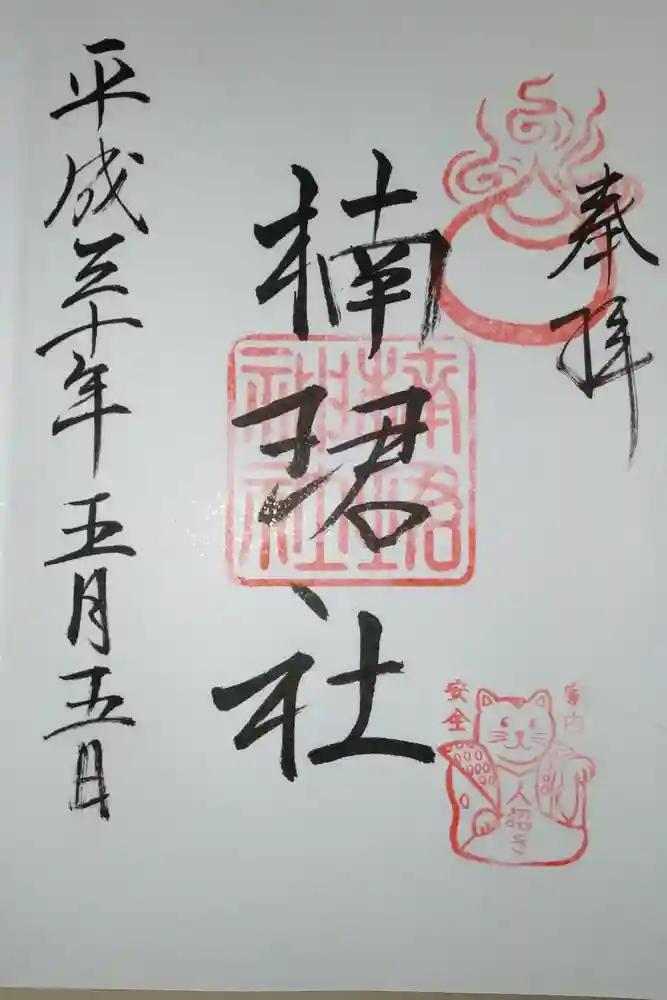 奉拝
楠珺社
平成三十年五月五日
家内
安全
人招き